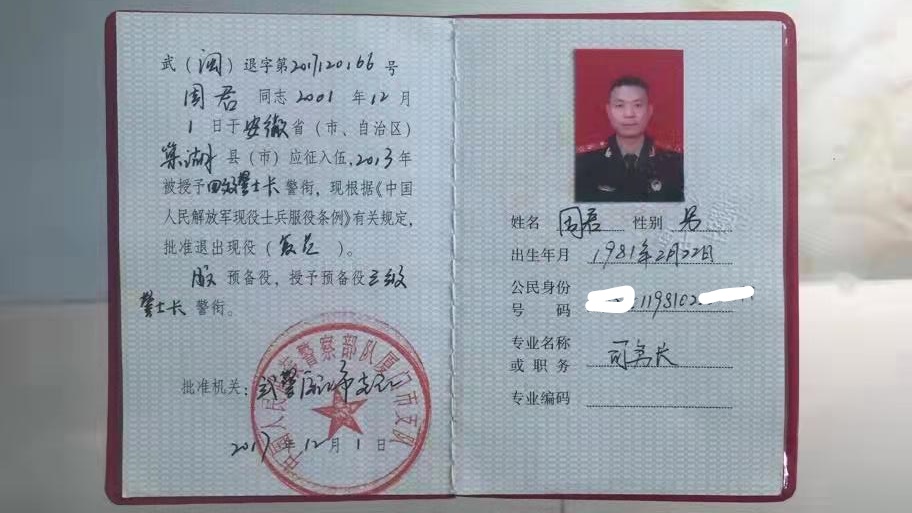 武（闽）退字第201712066号
周君 同志 2001 年 12 月
1 日于安徽省（市、自治区）
巢湖 县（市）应征入伍，2013 年
被授予四级警士长警衔，现根据《中国
人民解放军现役士兵服役条例》有关规定，
批准退出现役（复员）。
服 预备役，授予预备役三级
警士长 警衔。
批准机关：武警厦门市支队
2017 年 12 月 1 日
中国人民武装警察部队厦门市支队
姓名 周君 性别 男
出生年月 1981年2月22日
公民身份
号 码 1198102
专业名称
或 职 务 司务长
专业编码